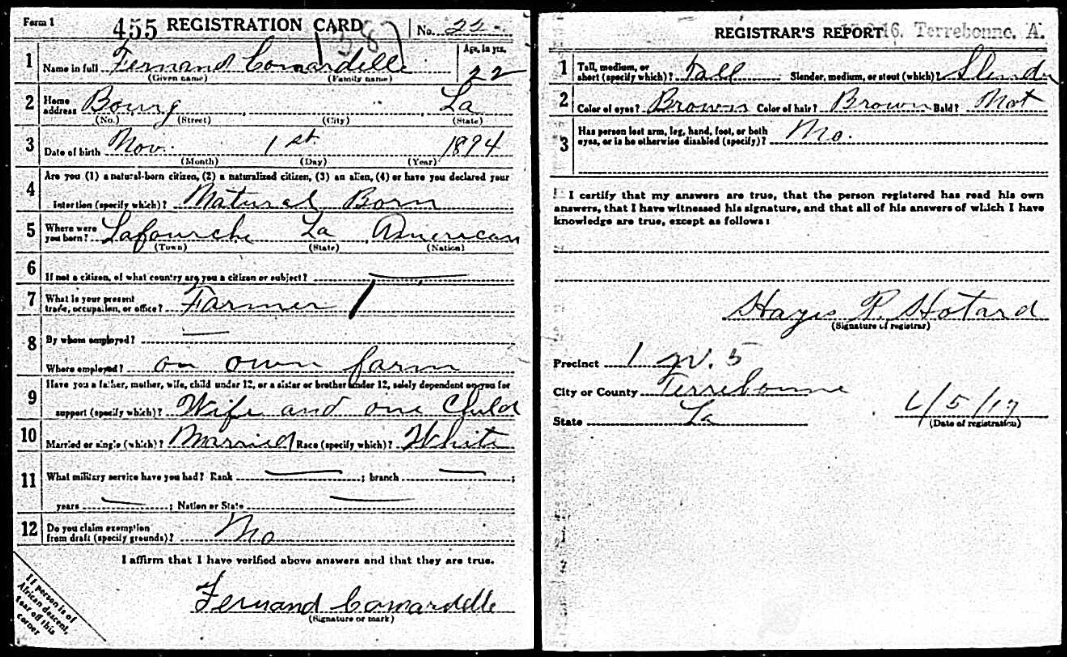 Form 1 455 REGISTRATION CARD No. 22
1 Name in full Fernand Comardelle Age, in yrs. 22
(Given name) (Family name)
2 Home address Bourg La
(No.) (Street) (City) (State)
3 Date of birth Nov. 1st 1894
(Month) (Day) (Year)
4 Are you (1) a natural-born citizen, (2) a naturalized citizen, (3) an alien, (4) or have you declared your
intention (specify which)? Natural Born
5 Where were you born? Lafourche La American
(Town) (State) (Nation)
6 If not a citizen, of what country are you a citizen or subject?
7 What is your present trade, occupation, or office? Farmer
8 By whom employed?
Where employed? on own farm
9 Have you a father, mother, wife, child under 12, or a sister or brother under 12, solely dependent on you for
support (specify which)? Wife and one Child
10 Married or single (which)? Married Race (specify which)? White
11 What military service have you had? Rank ; branch ;
years ; Nation or State
12 Do you claim exemption from draft (specify grounds)? No
I affirm that I have verified above answers and that they are true.
Fernand Comardelle
(Signature or mark)
If person is of
African descent,
tear off this
corner
REGISTRAR'S REPORT 16. Terrebonne, A.
1 Tall, medium, or short (specify which)? Tall Slender, medium, or stout (which)? Slender
2 Color of eyes? Brown Color of hair? Brown Bald? Not
3 Has person lost arm, leg, hand, foot, or both
eyes, or is he otherwise disabled (specify)? No.
I certify that my answers are true, that the person registered has read his own
answers, that I have witnessed his signature, and that all of his answers of which I have
knowledge are true, except as follows:
Hayes P. Hotard
(Signature of registrar)
Precinct 1 W. 5
City or County Terrebonne
State La 6/5/17
(Date of registration)